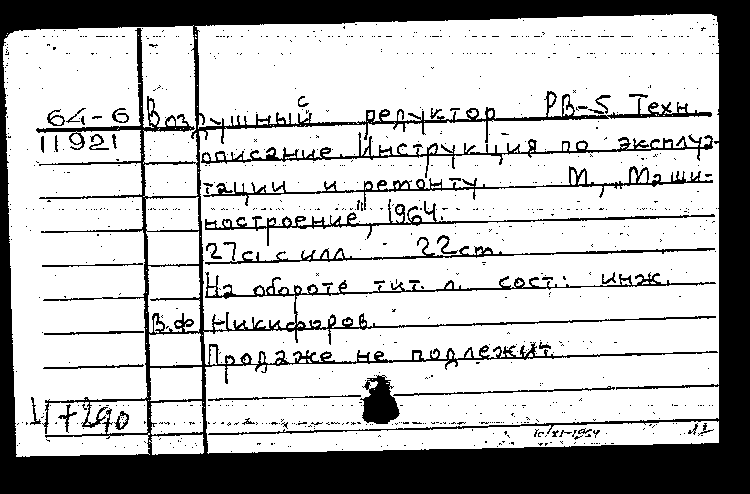 64-6 Воздушный редуктор РВ-5 Техн.
11921 описание. Инструкция по эксплуа-
тации и ремонту. М., „Маши-
ностроение", 1964.
27с. с илл. 22см.
На обороте тит. л. сост.: инж.
В.Ф Никифоров.
Продаже не подлежит.